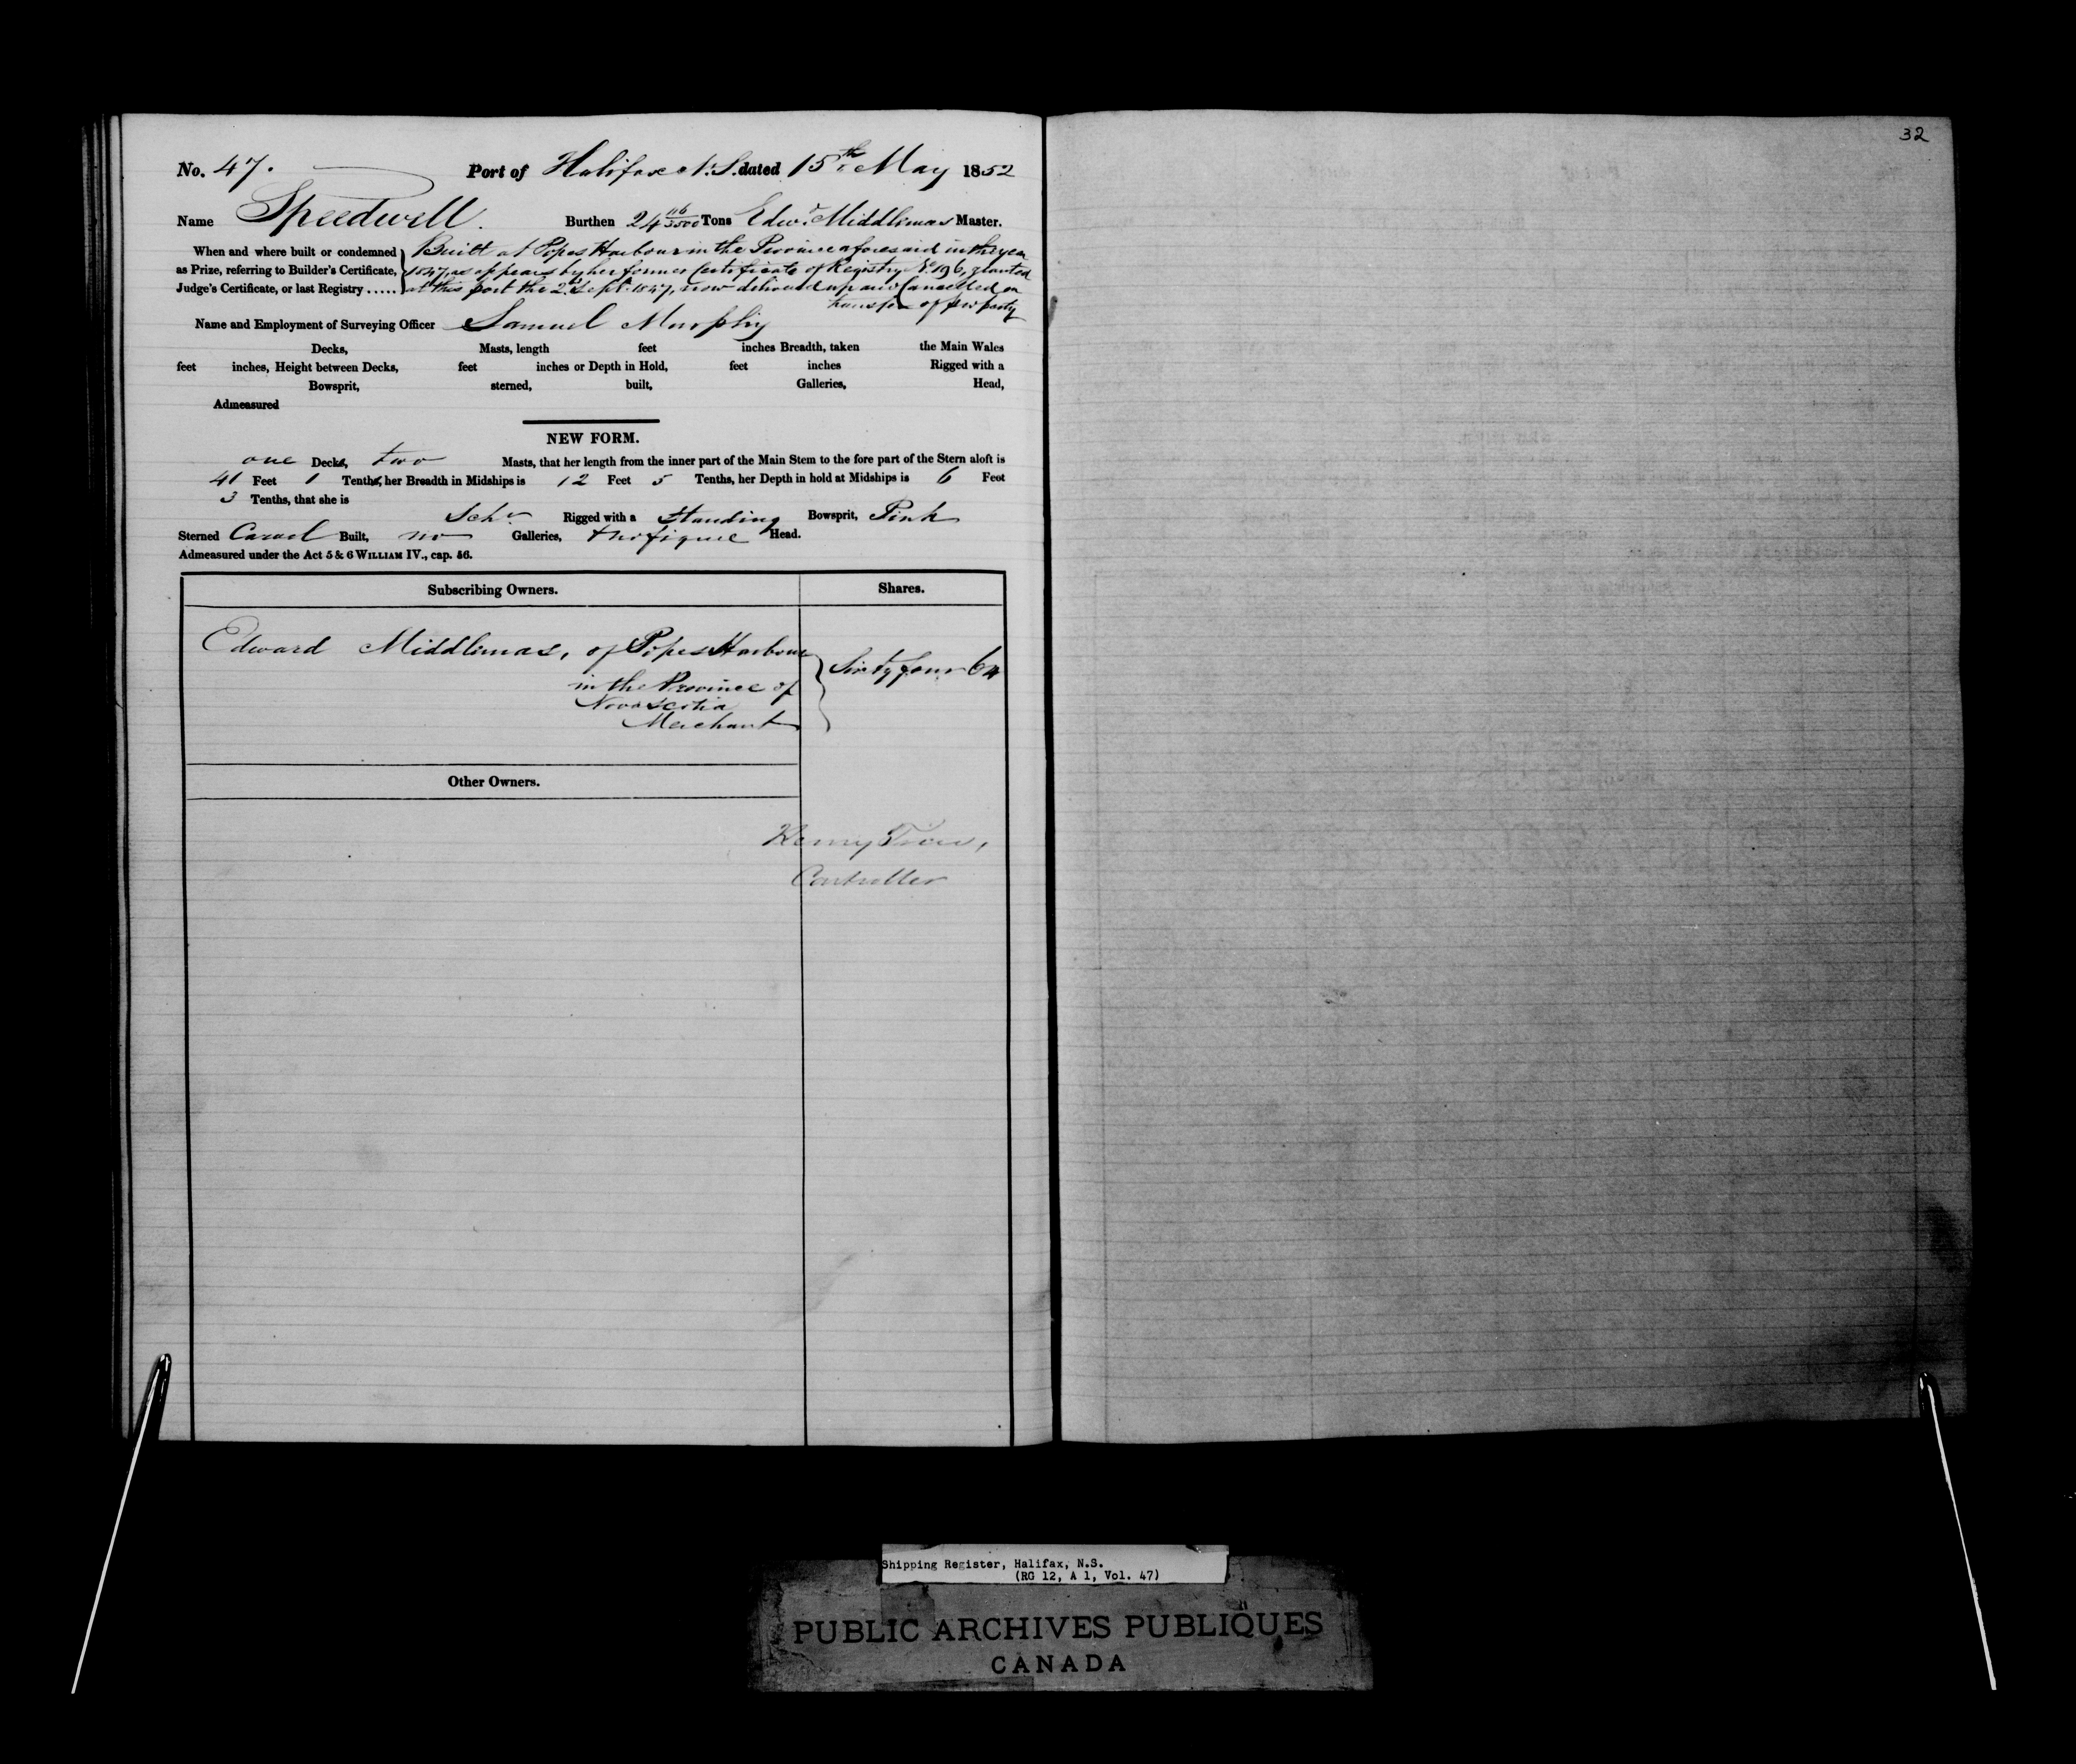 32
No. 47. Port of Halifax N.S. dated 15th May 1852
Name Speedwell. Burthen 24 116/3500 Tons Edwd. Middlemas Master.
When and where built or condemned as Prize, referring to Builder's Certificate, Judge's Certificate, or last Registry .....
Built at Popes Harbour in the Province aforesaid in the year
1847, as appears by her former Certificate of Registry No. 196, granted
at this port the 2d Sept. 1847, now delivered up and Cancelled on
transfer of property
Name and Employment of Surveying Officer Samuel Murphy
Decks, Masts, length feet inches Breadth, taken the Main Wales
feet inches, Height between Decks, feet inches or Depth in Hold, feet inches Rigged with a
Bowsprit, sterned, built, Galleries, Head,
Admeasured
NEW FORM.
one Decks, two Masts, that her length from the inner part of the Main Stem to the fore part of the Stern aloft is
41 Feet 1 Tenths, her Breadth in Midships is 12 Feet 5 Tenths, her Depth in hold at Midships is 6 Feet
3 Tenths, that she is
Schr Rigged with a Standing Bowsprit, Pink
Sterned Carvel Built, no Galleries, figure Head.
Admeasured under the Act 5 & 6 WILLIAM IV., cap. 56.
Subscribing Owners. Shares.
Edward Middlemas, of Popes Harbour
in the Province of
Nova Scotia
Merchant
Sixty four 64
Other Owners.
Henry
Controller
Shipping Register, Halifax, N.S.
(RG 12, A 1, Vol. 47)
PUBLIC ARCHIVES PUBLIQUES
CANADA